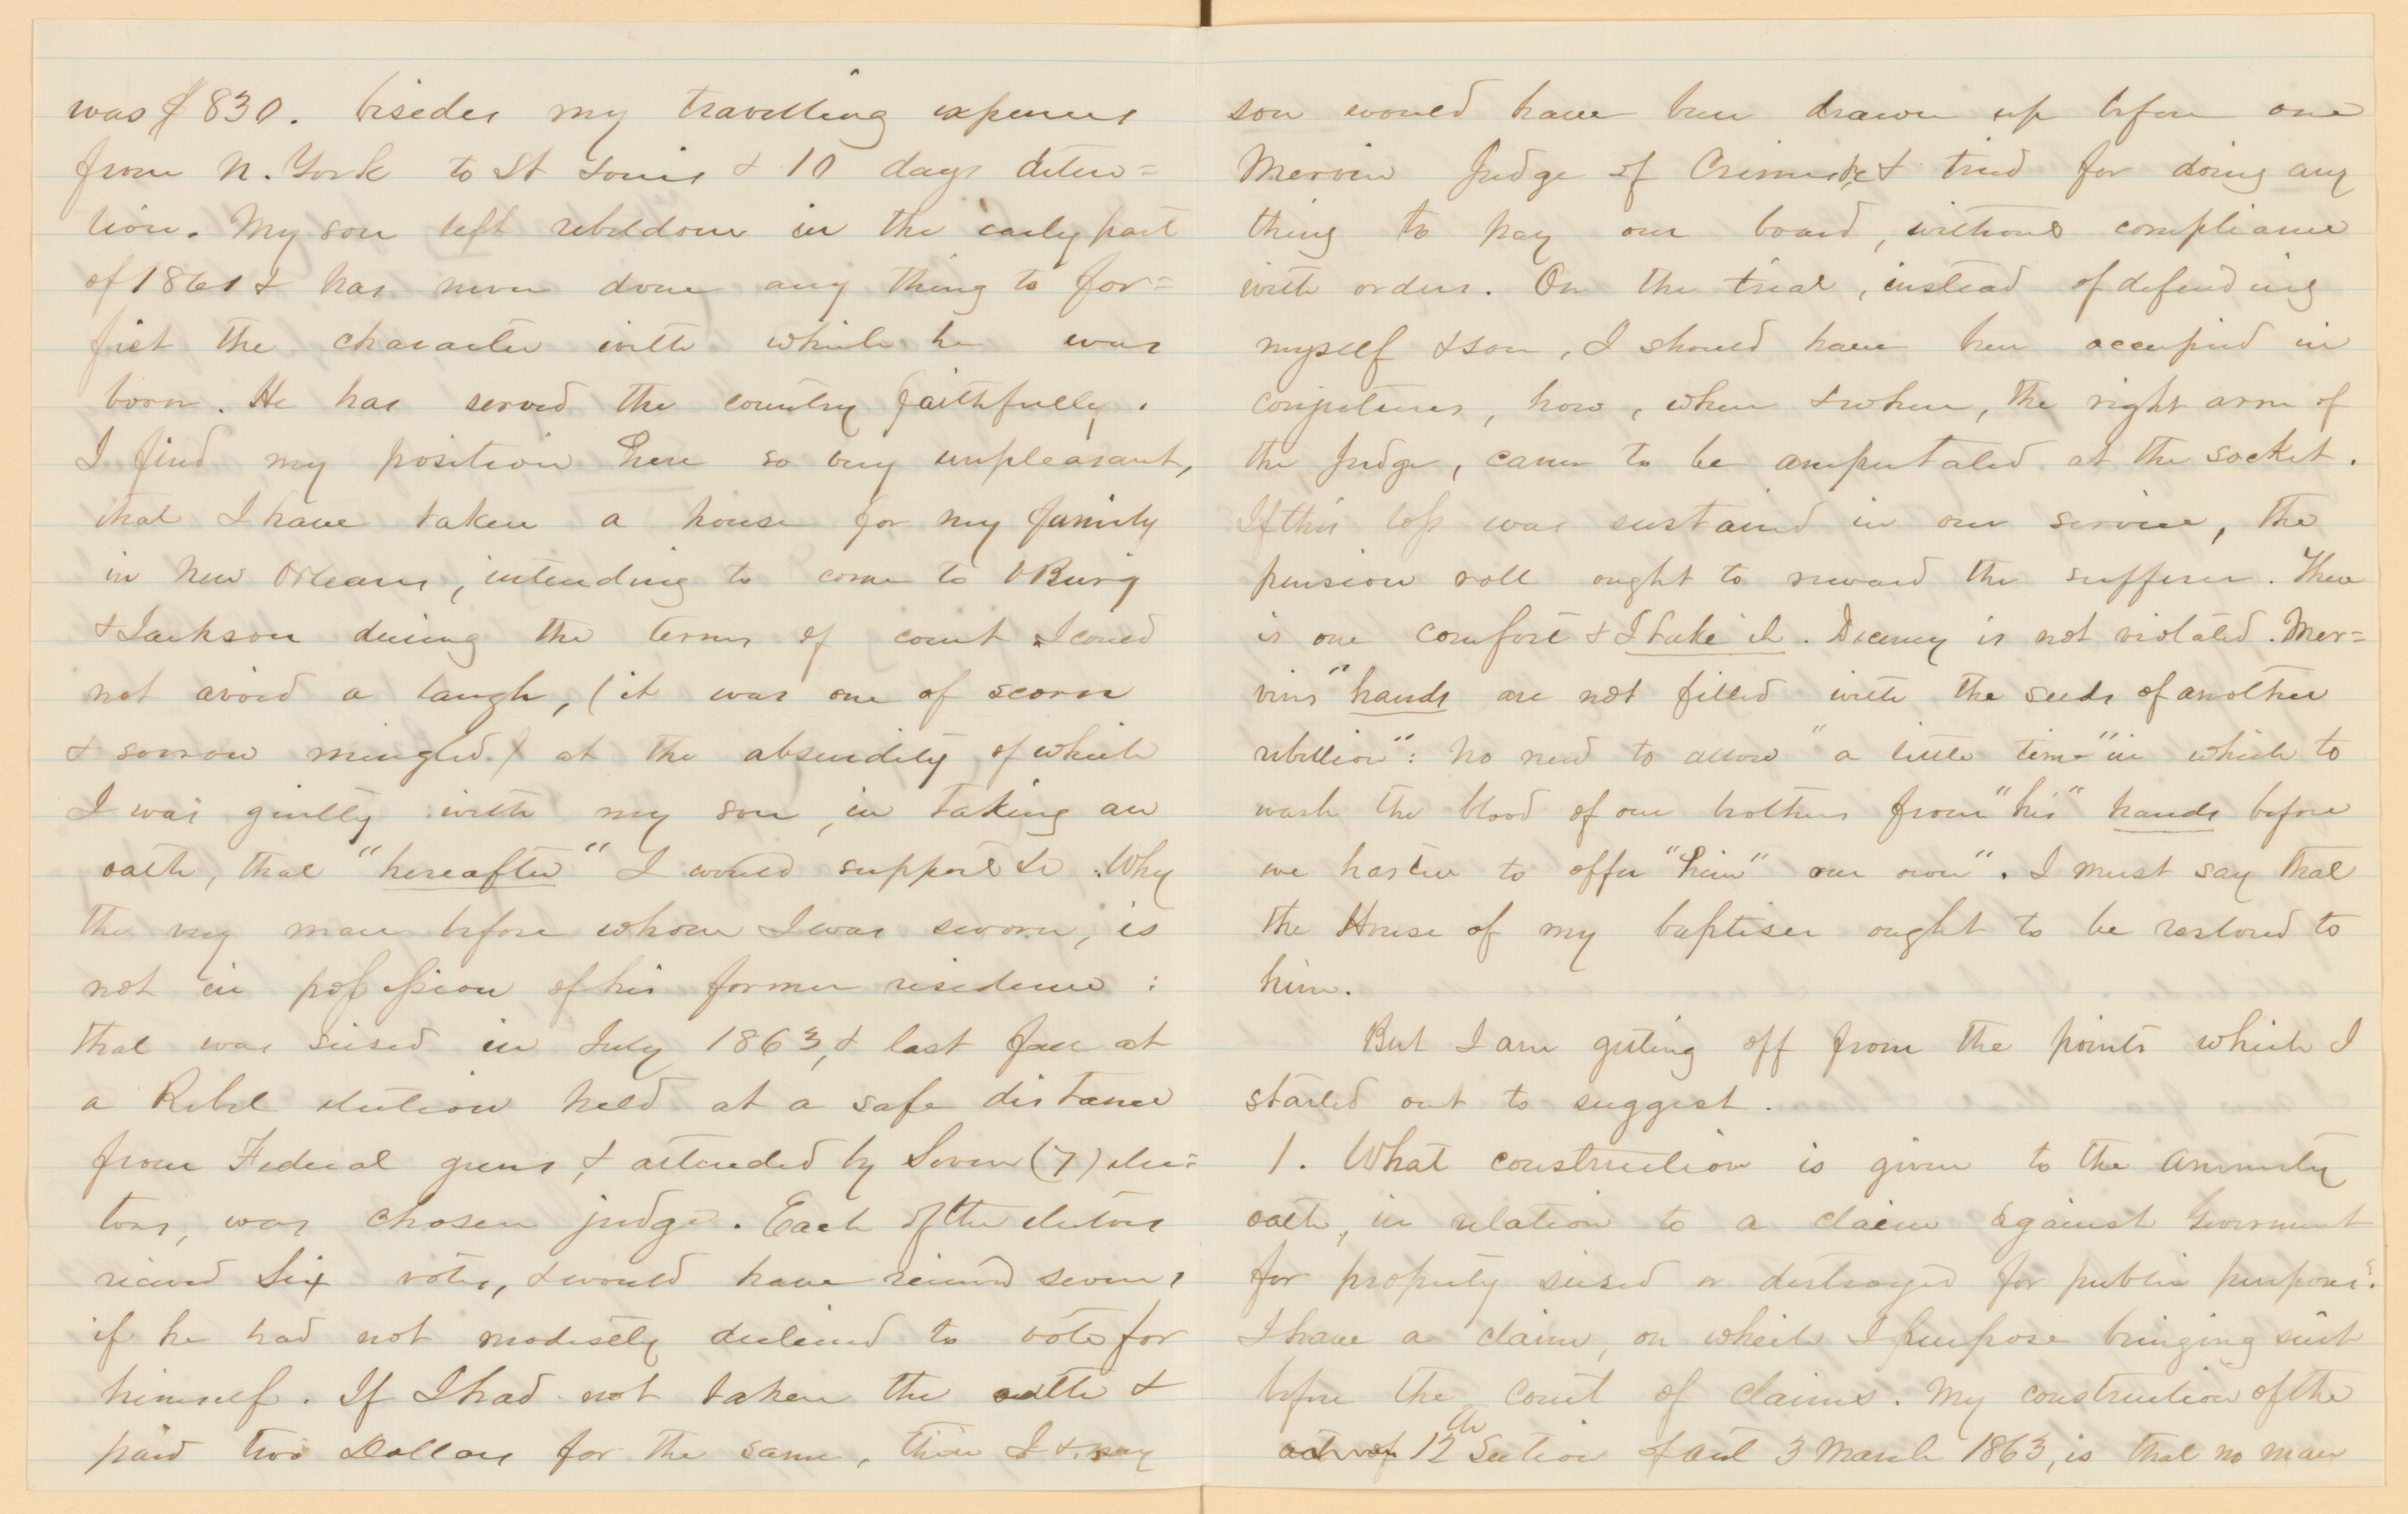 was $830. besides my travelling expenses
from N. York to St Louis & 10 days deten=
tion. My son left rebeldom in the early part
of 1861 & has never done any thing to for=
fiet the character with which he was
born. He has served the country faithfully.
I find my position here so very unpleasant,
that I have taken a house for my family
in New Orleans, intending to come to VBurg
& Jackson during the terms of court. I could
not avoid a laugh, (it was one of scorn
& sorrow mingled) at the absurdity of which
I was guilty with my son, in taking an
oath, that "hereafter" I would support &c. Why
the very man before whom I was sworn, is
not in possession of his former residence:
that was seised in July 1863, & last fall at
a Rebel election held at a safe distance
from Federal guns, & attended by Seven (7) elec=
tors, was chosen judge. Each of the electors
recieved Six votes, & would have recieved seven,
if he had not modestly declined to vote for
himself. If I had not taken the oath &
paid two Dollars for the same, then I & my
son would have been drawn up before one
Mervin Judge of Crimes &c & tried for doing any
thing to pay our board, without compliance
with orders. On the trial, instead of defending
myself & son, I should have been occupied in
conjectures, how, when & where, the right arm of
the Judge, came to be amputated at the socket.
If this loss was sustained in our service, the
pension roll ought to reward the sufferer. There
is one comfort & I take it. Decency is not violated. Mer=
vins "hands are not filled with the seeds of another
rebellion": No need to allow "a little time" in which to
wash the blood of our brothers from "his" hands before
we hasten to offer "him" our own". I must say that
the House of my baptiser ought to be restored to
him.
But I am geting off from the points which I
started out to suggest.
1. What construction is given to the amnesty
oath, in relation to a claim against Government
for property seised or destroyed for public purposes?
I have a claim, on which I purpose bringing suit
before the Court of Claims. My construction of the
12th Section of act 3 March 1863, is that no man